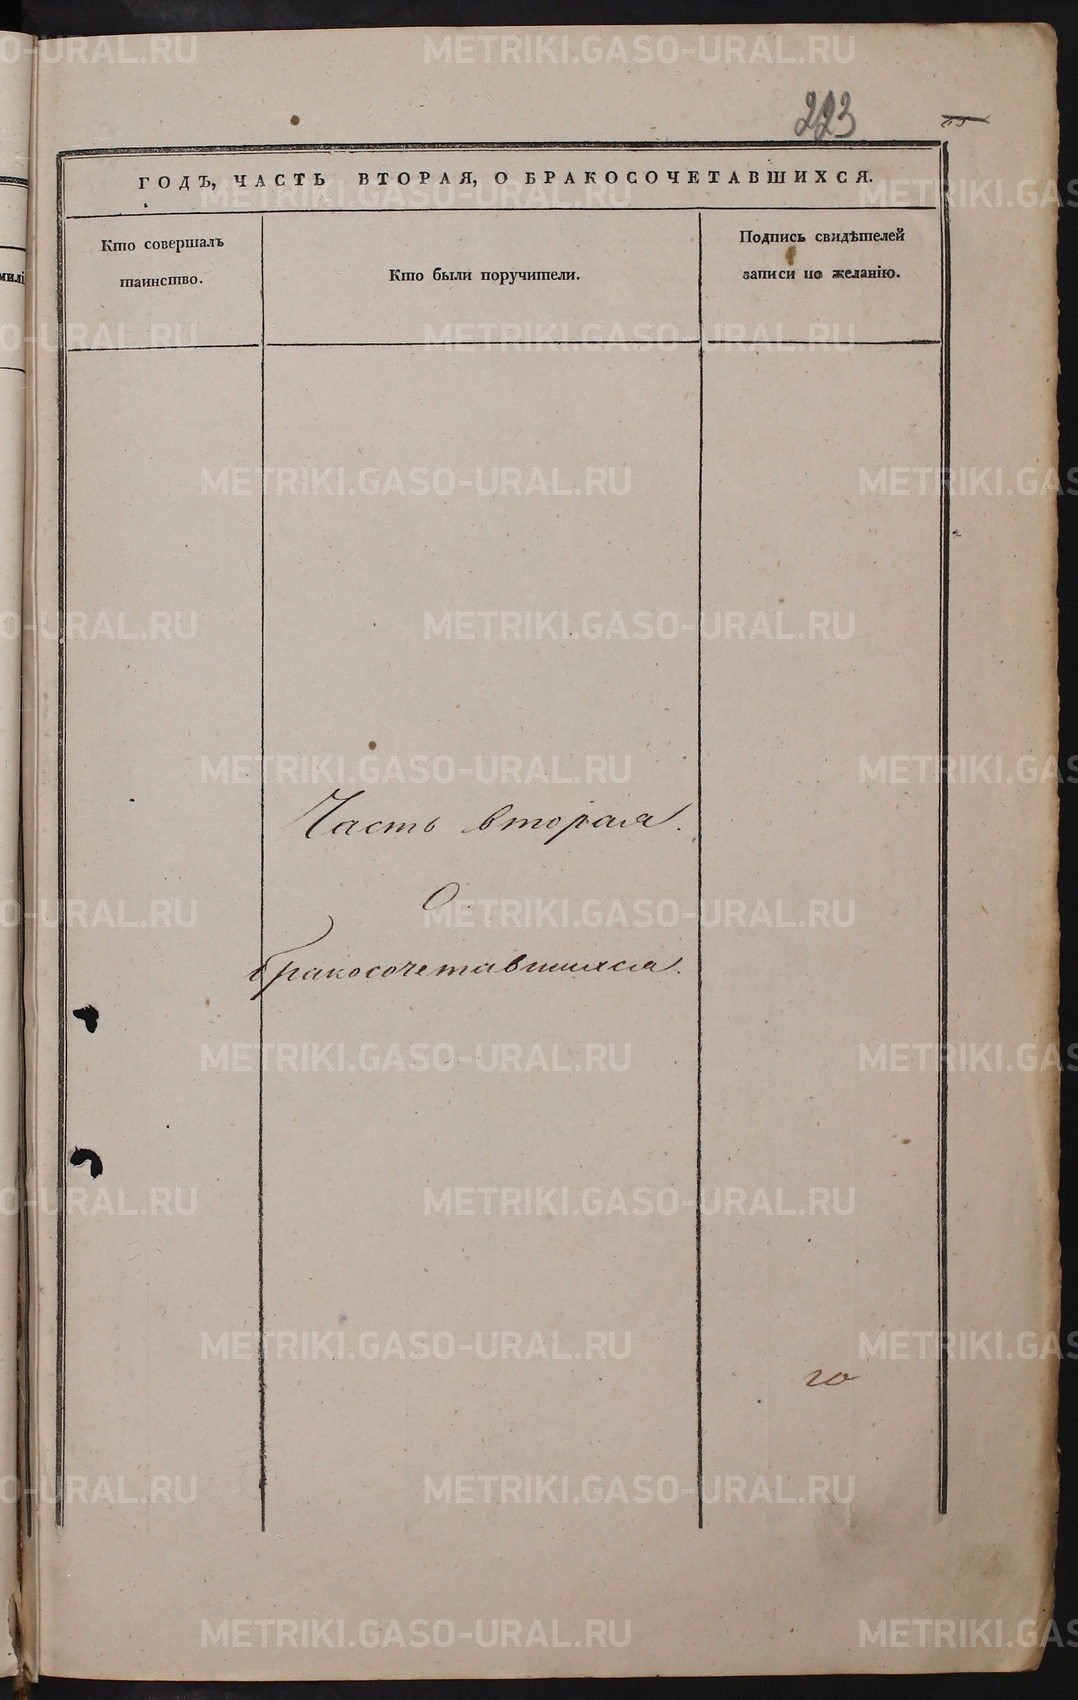 223
ГОДЪ, ЧАСТЬ ВТОРАЯ, О БРАКОСОЧЕТАВШИХСЯ.
Кто совершалъ
таинство.
Кто были поручители.
Подпись свидѣтелей
записи по желанію.
Часть вторая.
О
бракосочетавшихся.
го
METRIKI.GASO-URAL.RU